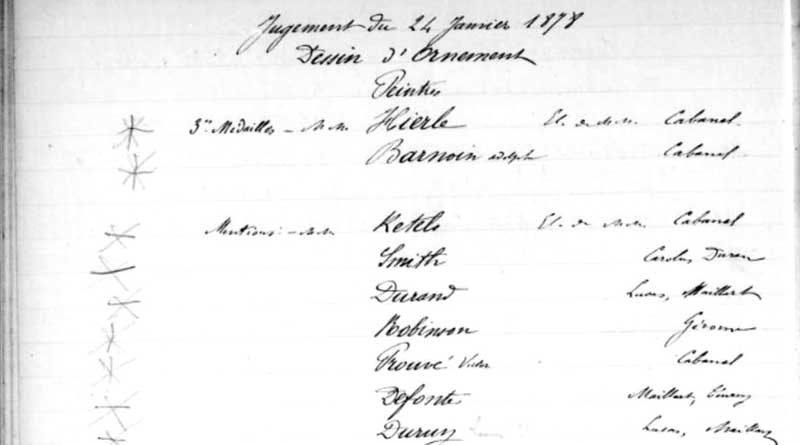 Jugement du 24 Janvier 1878
Dessin d'Ornement
Peintres
3es Médailles - M.M. Hierle El. de M.M. Cabanel
Barnoin adolphe Cabanel
Mentions: - M.M. Ketels El. de M.M. Cabanel
Smith Carolus Duran
Durand Lucas, Maillart
Robinson Gérome
Prouvé Victor Cabanel
Defonte Maillart,
Duruy Lucas, Maillart